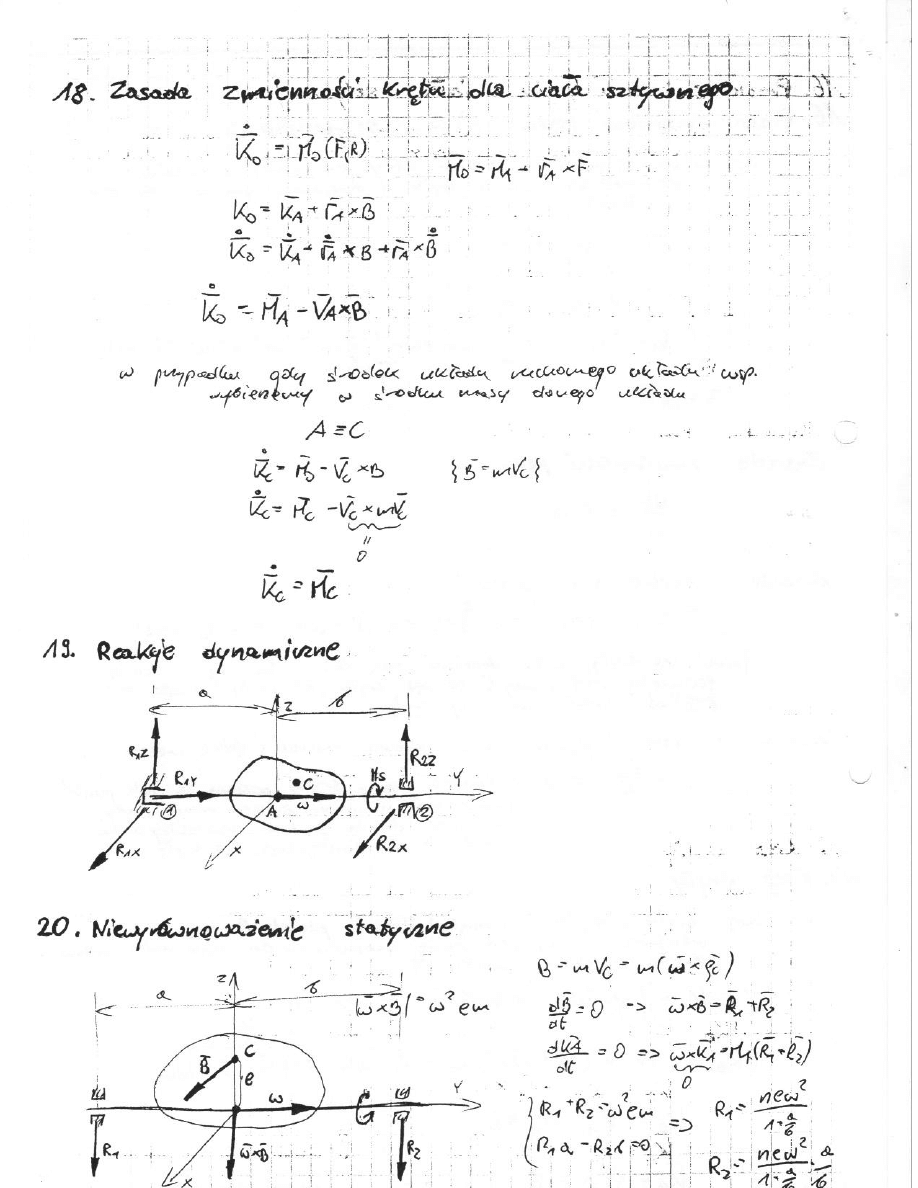 18. Zasada zmienności krętu dla ciała sztywnego
K̇̄₀ = M̄₀ (F, R)
M̄₀ = M̄_A + r̄_A × F̄
K₀ = K̄_A + r̄_A × B̄
K̇̄₀ = K̇̄_A + ṙ̄_A × B + r̄_A × Ḃ̄
K̇̄₀ = M̄_A − V̄_A × B̄
w przypadku gdy środek układu ruchomego układu wsp.
wybierzemy w środku masy danego układu
A ≡ C
K̇̄_C = M̄ − V̄_C × B {B̄ = mV̄_C}
K̇̄_C = M̄_C − V̄_C × mV̄_C
= 0
K̇̄_C = M̄_C
19. Reakcje dynamiczne
a b
z
R1Z R2Z
R1Y C Ms Y
A ω
1 2
R1X X R2X
20. Niewyrównoważenie statyczne
z a b
|ω̄×B̄| = ω² em
B̄ C e ω Y
R₁ ω̄×B̄ R₂
X
B = mV_C = m(ω̄ × ρ̄_C)
dB̄/dt = 0 → ω̄×B̄ = R̄₁ + R̄₂
dK̄_A/dt = 0 ⇒ ω̄×K̄_A = M_A(R̄₁ + R̄₂)
0
{ R₁ + R₂ = ω² em
R₁a − R₂b = 0
⇒ R₁ = meω² / 1+a/b
R₂ = meω² / 1+a/b · a/b